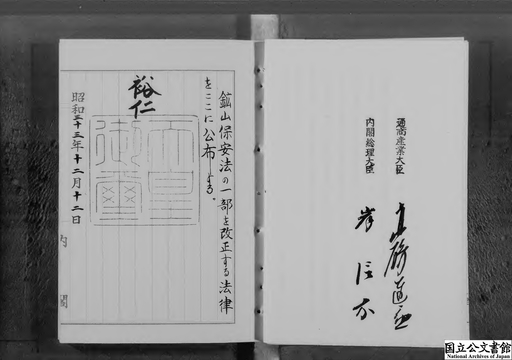 通商産業大臣 高碕達之助
内閣総理大臣 岸信介
鉱山保安法の一部を改正する法律
をここに公布する。
裕仁
天皇
御璽
昭和三十三年十二月十二日
内閣
国立公文書館
National Archives of Japan